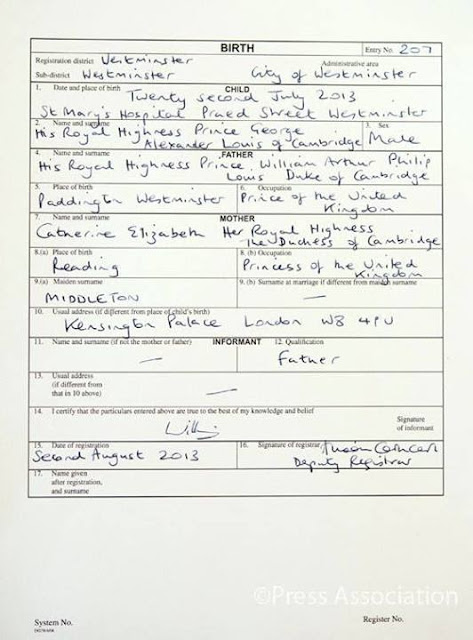 BIRTH
Entry No. 207
Registration district Westminster
Administrative area
Sub-district Westminster
City of Westminster
1. Date and place of birth CHILD
Twenty second July 2013
St Mary's Hospital Praed Street Westminster
2. Name and surname
3. Sex
His Royal Highness Prince George
Alexander Louis of Cambridge
Male
4. Name and surname FATHER
His Royal Highness Prince William Arthur Philip
Louis Duke of Cambridge
5. Place of birth
Paddington Westminster
6. Occupation
Prince of the United
Kingdom
7. Name and surname MOTHER
Catherine Elizabeth Her Royal Highness
The Duchess of Cambridge
8.(a) Place of birth
Reading
8. (b) Occupation
Princess of the United
Kingdom
9.(a) Maiden surname
MIDDLETON
9. (b) Surname at marriage if different from maiden surname
—
10. Usual address (if different from place of child's birth)
Kensington Palace London W8 4PU
11. Name and surname (if not the mother or father) INFORMANT
—
12. Qualification
Father
13. Usual address
(if different from
that in 10 above)
—
14. I certify that the particulars entered above are true to the best of my knowledge and belief
Signature
of informant
15. Date of registration
Second August 2013
16. Signature of registrar
Deputy Registrar
17. Name given
after registration,
and surname
©Press Association
System No.
Register No.